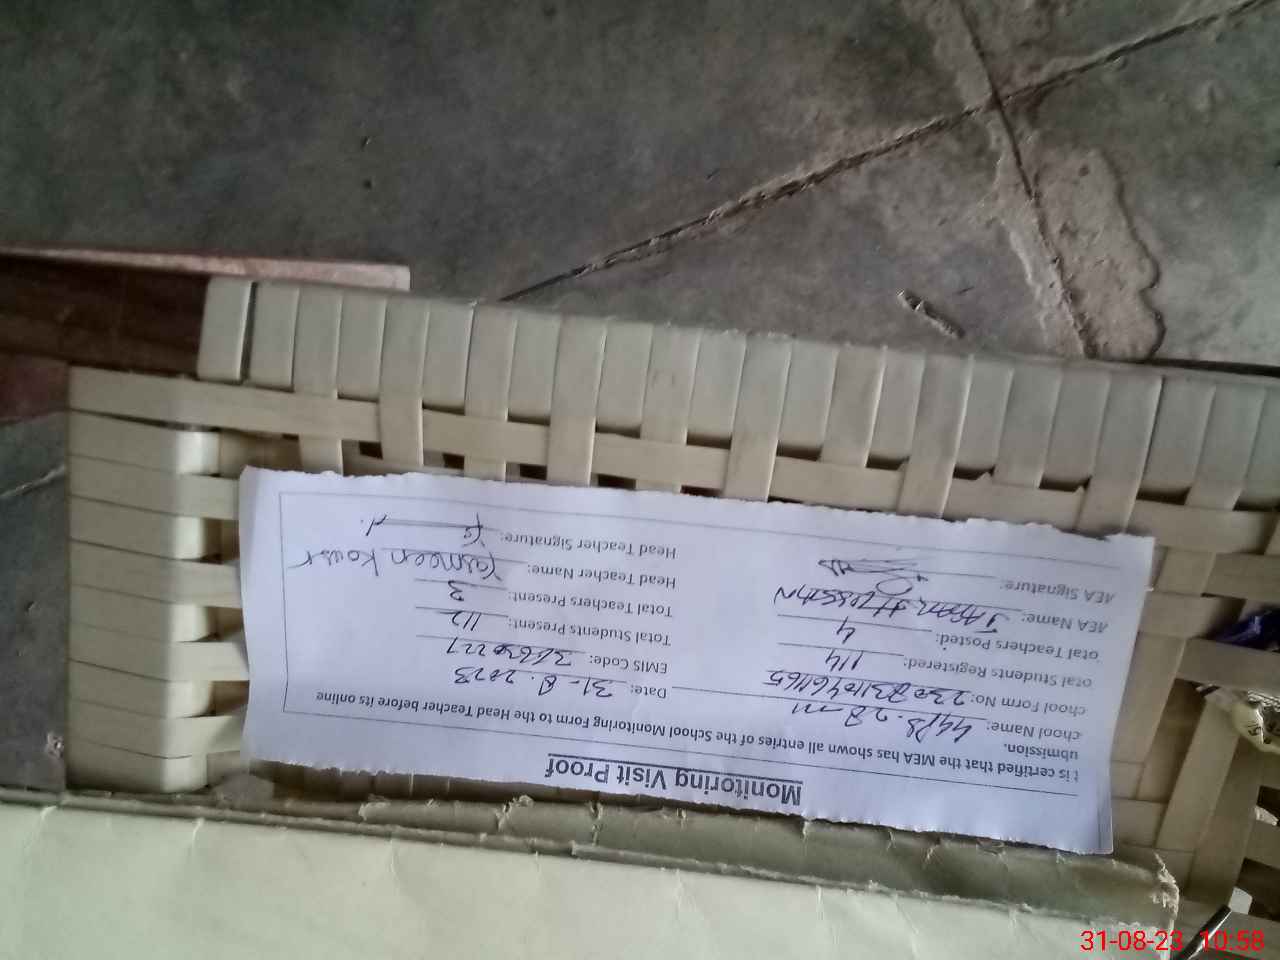 Monitoring Visit Proof
t is certified that the MEA has shown all entries of the School Monitoring Form to the Head Teacher before its online
ubmission.
chool Name: Date: 31-8-2023
chool Form No: EMIS Code:
otal Students Registered: 114 Total Students Present: 112
otal Teachers Posted: 4 Total Teachers Present: 3
AEA Name: Head Teacher Name: Yasmeen Kousr
AEA Signature: Head Teacher Signature:
31-08-23 10:58